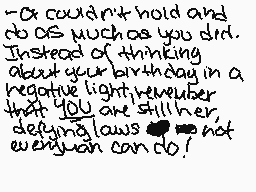 -or couldn't hold and
do as much as you did.
Instead of thinking
about your birthday in a
negative light, remember
that YOU are still her,
defying laws not
everyman can do!